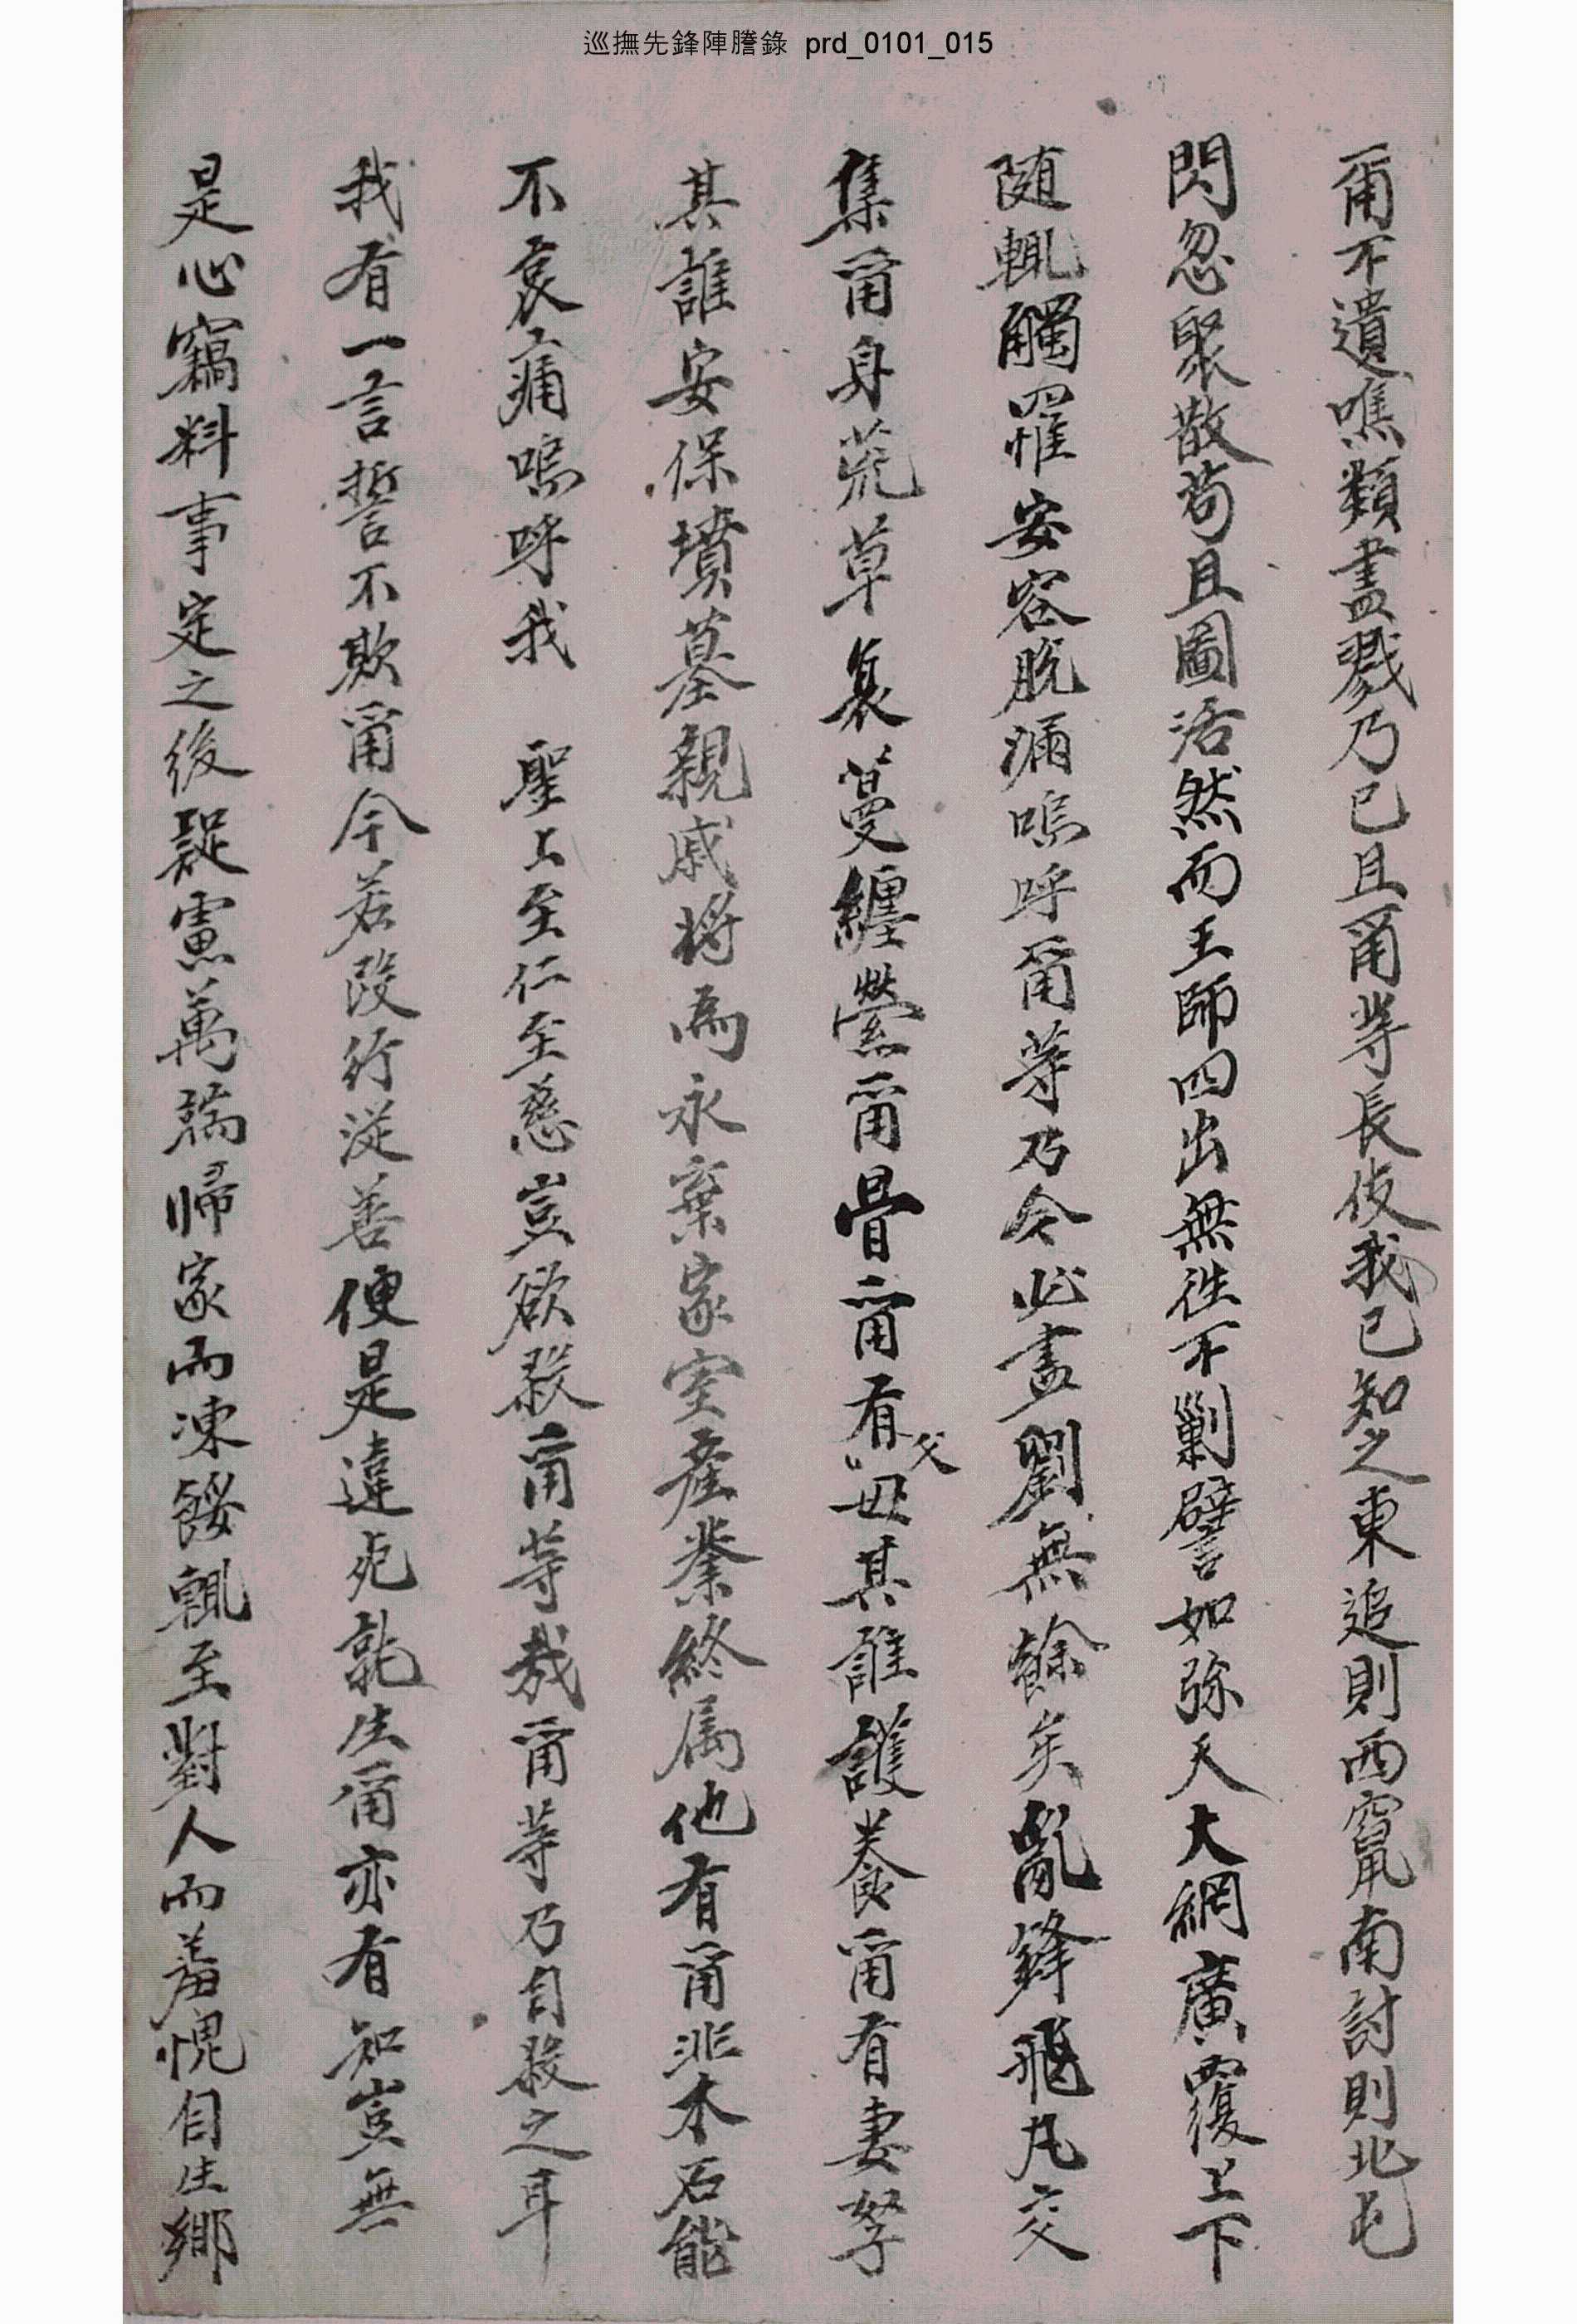 爾不遺噍類盡戮乃已且爾等長伎我已知之東追則西竄南討則北
閃忽聚散苟且圖活然而王師四出無往不剿譬如弥天大網廣覆上下
随輒觸罹安容脫漏嗚呼爾等乃今必盡劉無餘矣亂鋒飛丸交
集爾身荒草裊蔓纏縈爾骨爾有父母其誰護養爾有妻孥
其誰安保墳墓親戚將爲永棄家室産業終属他有爾非木石能
不哀痛嗚呼我 聖上至仁至慈豈欲殺爾等哉爾等乃自殺之耳
我有一言誓不欺爾今若改行從善便是違死就生爾亦有知豈無
是心竊料事定之後疑慮萬端歸家而凍餒輒至對人而羞愧自生鄉
巡撫先鋒陣謄錄 prd_0101_015